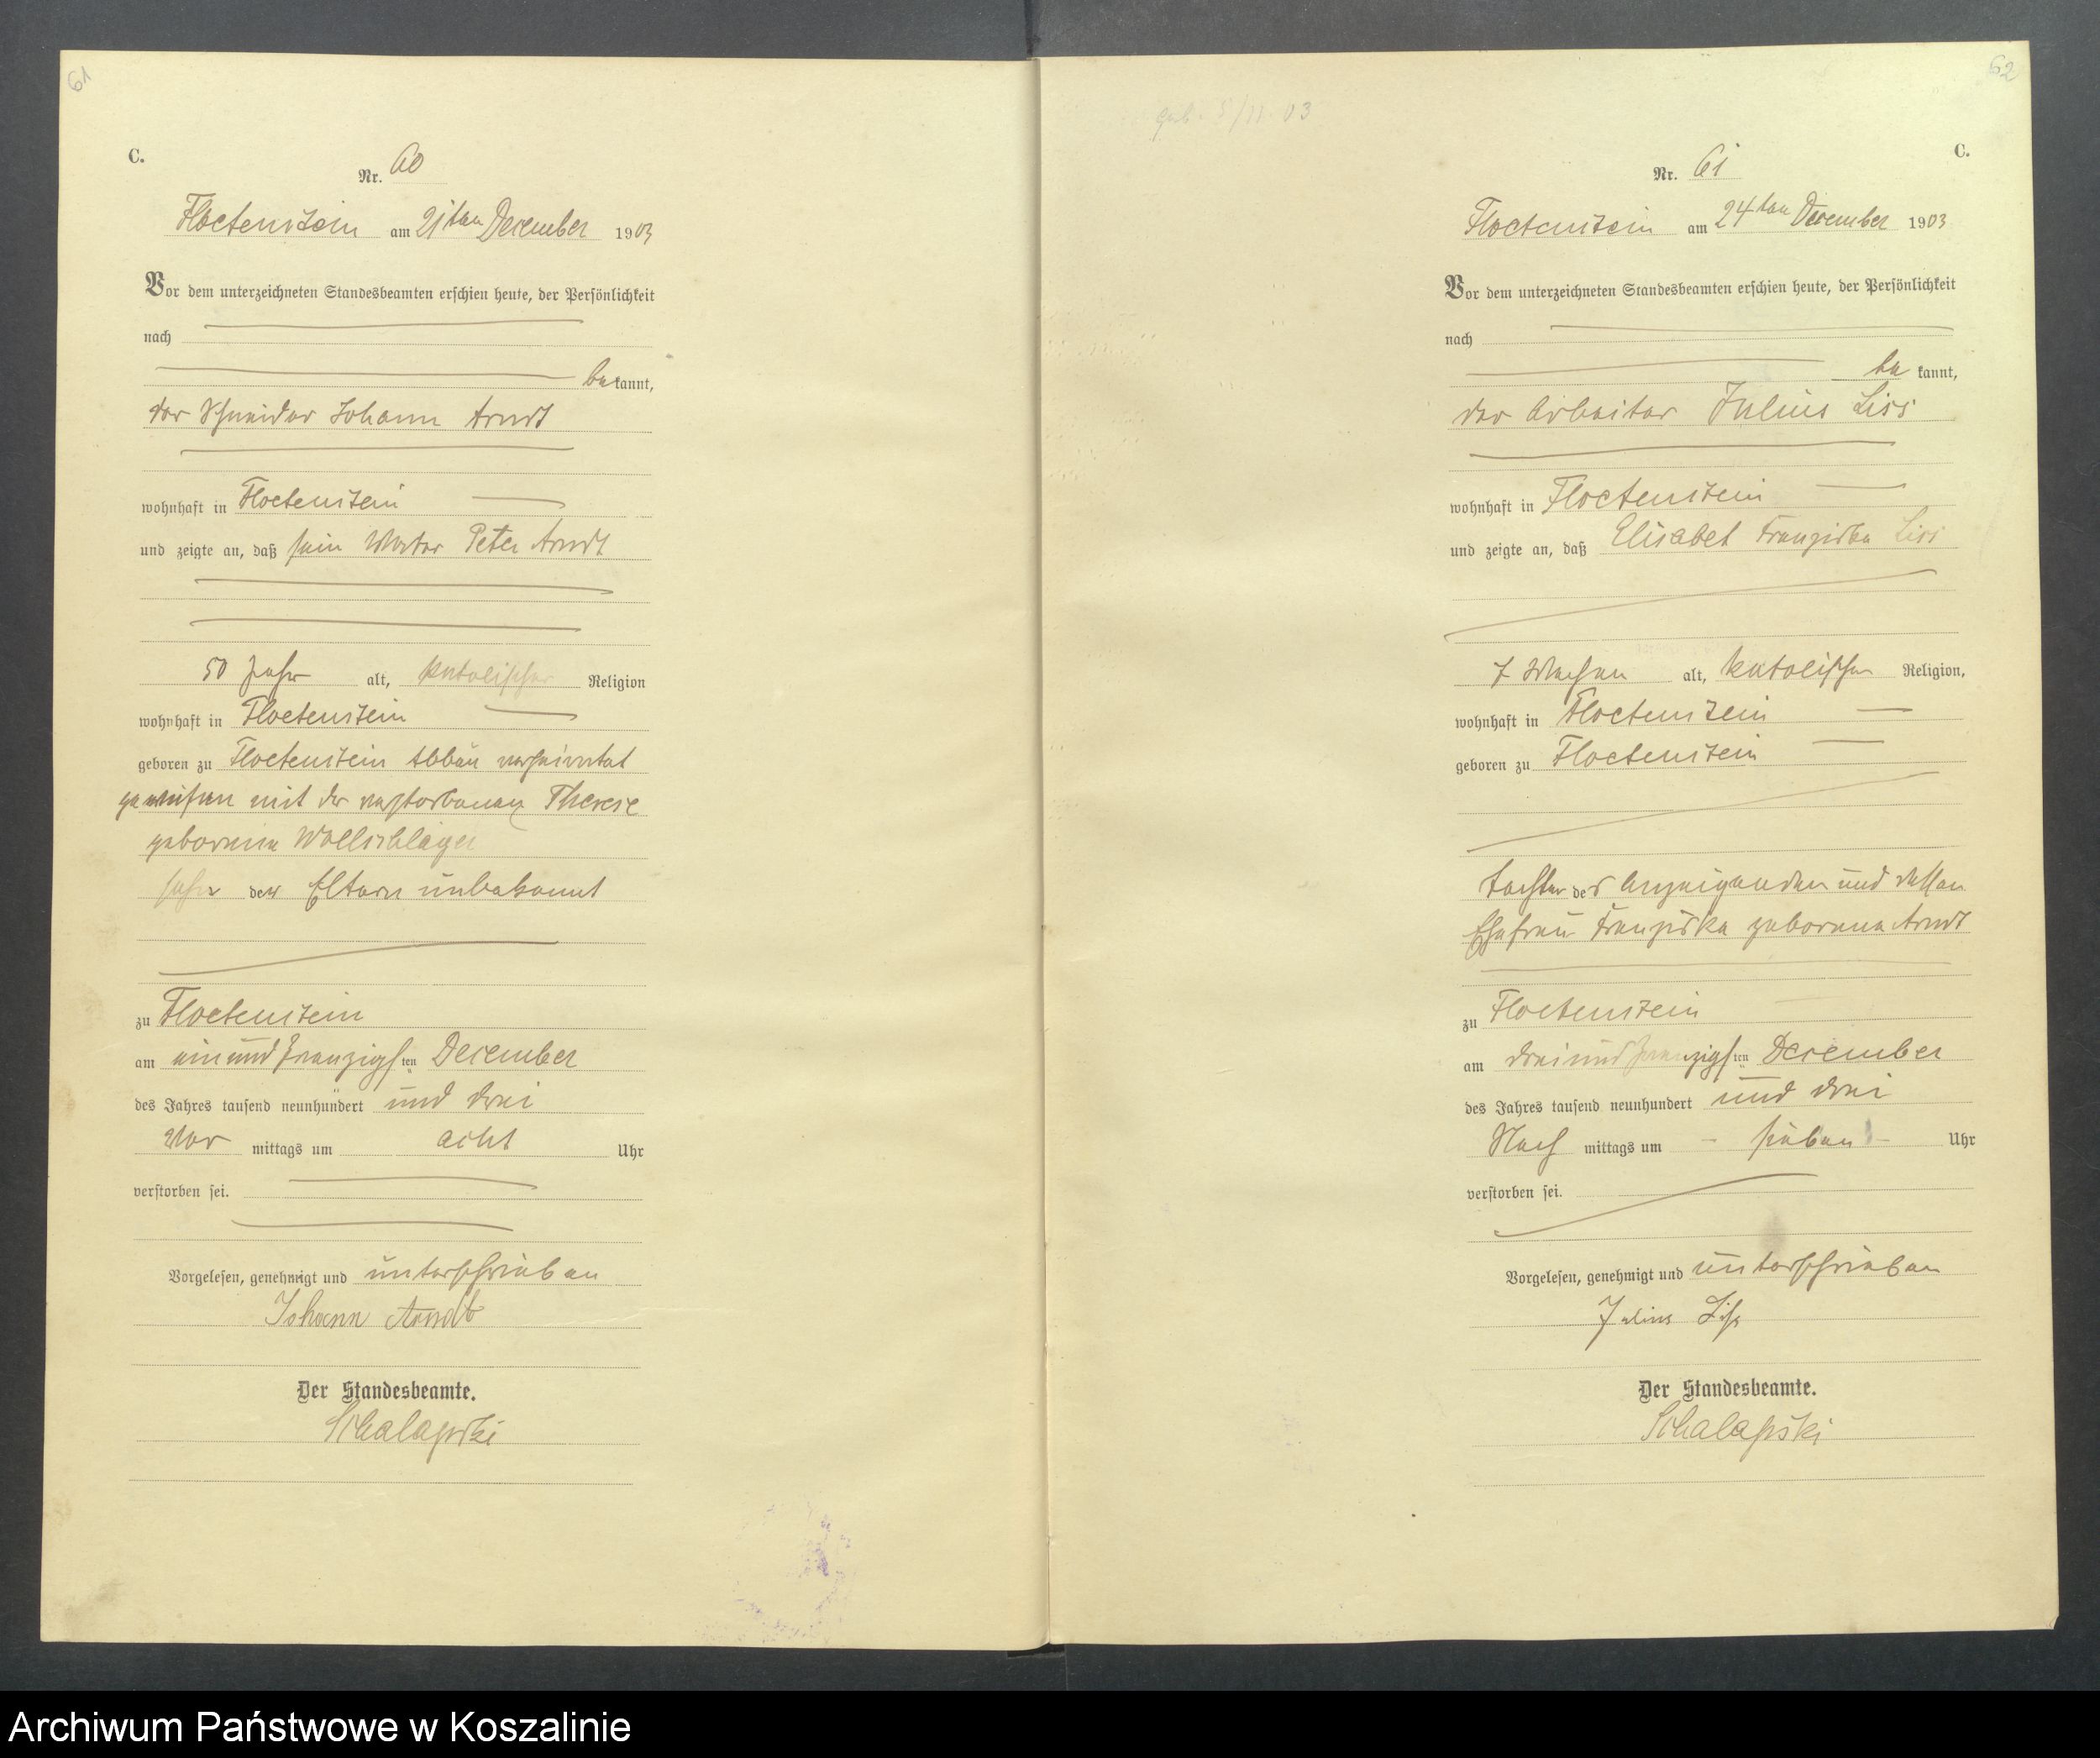 61
C.
Nr. 60
Floetenstein am 21ten December 1903
Vor dem unterzeichneten Standesbeamten erschien heute, der Persönlichkeit
nach
bekannt,
der Schneider Johann Arndt
wohnhaft in Floetenstein
und zeigte an, daß sein Vater Peter Arndt
50 Jahr alt, katolischer Religion
wohnhaft in Floetenstein
geboren zu Floetenstein verheiratet
gewesen mit der verstorbenen Therese
geborene Wollschläger
Sohn der Eltern unbekannt
zu Floetenstein
am einundzwanzigsten December
des Jahres tausend neunhundert und drei
Vor mittags um acht Uhr
verstorben sei.
Vorgelesen, genehmigt und unterschrieben
Johann Arndt
Der Standesbeamte.
Schalapski
62
geb. 5/11 03
C.
Nr. 61
Floetenstein am 24ten December 1903
Vor dem unterzeichneten Standesbeamten erschien heute, der Persönlichkeit
nach
be kannt,
der Arbeiter Julius Liss
wohnhaft in Floetenstein
und zeigte an, daß Elisabet Franziska Liss
7 Wochen alt, katolischer Religion,
wohnhaft in Floetenstein
geboren zu Floetenstein
Tochter des Anzeigenden und dessen
Ehefrau Franziska geborene Arndt
zu Floetenstein
am dreiundzwanzigsten December
des Jahres tausend neunhundert und drei
Nach mittags um sieben Uhr
verstorben sei.
Vorgelesen, genehmigt und unterschrieben
Julius Liss
Der Standesbeamte.
Schalapski
Archiwum Państwowe w Koszalinie